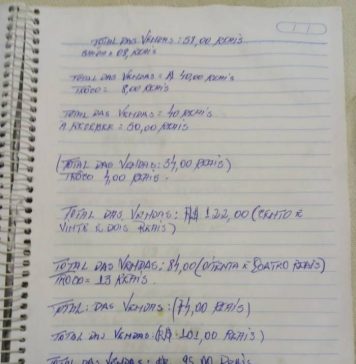 TOTAL DAS VENDAS: 51,00 REAIS
08, REAIS
TOTAL DAS VENDAS = R$ 40,00 REAIS
TROCO = 8,00 REAIS
TOTAL DAS VENDAS = 40 REAIS
A RECEBER = 50,00 REAIS
(TOTAL DAS VENDAS: 54,00 REAIS)
TROCO 4,00 REAIS.
TOTAL DAS VENDAS: R$ 122,00 (CENTO E
VINTE E DOIS REAIS)
TOTAL DAS VENDAS: 84,00 (OITENTA E QUATRO REAIS)
TROCO = 13 REAIS.
TOTAL: DAS VENDAS: (74,00 REAIS)
TOTAL DAS VENDAS: (R$ 101,00 REAIS)
TOTAL DAS VENDAS: R$ 95,00